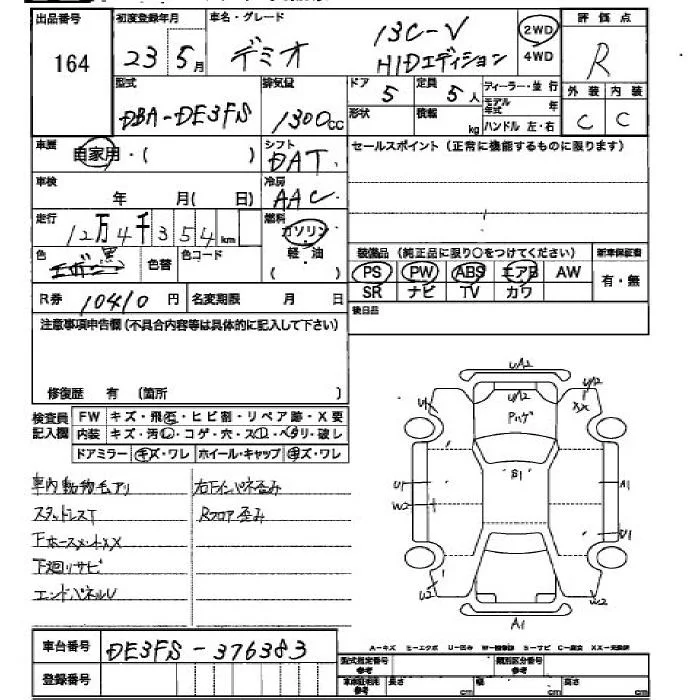 出品番号 初度登録年月 車名・グレード 評価点
164 23 5月 デミオ 13C-V HIDエディション 2WD 4WD R
型式 排気量 ドア 定員 ディーラー・並行 外装 内装
DBA-DE3FS 1300cc 5 5人 モデル年式 年 C C
形状 積載 kg ハンドル 左・右
車歴 自家用・( ) シフト DAT セールスポイント(正常に機能するものに限ります)
車検 年 月( 日) 冷房 AAC
走行 12万4千354km 燃料 ガソリン 軽・油 ( )
装備品(純正品に限り○をつけてください) 新車保証書
色 黒 色替 色コード
PS PW ABS エアB AW 有・無
SR ナビ TV カワ
R券 10410円 名変期限 月 日 後日品
注意事項申告欄(不具合内容等は具体的に記入して下さい)
修復歴 有 (箇所 )
検査員記入欄 FW キズ・飛石・ヒビ割・リペア跡・X要
内装 キズ・汚レ・コゲ・穴・スレ・ヘタリ・破レ
ドアミラー キズ・ワレ ホイール・キャップ キズ・ワレ
車内動物毛アリ 右下インパネ歪み
スタッドレスT Rフロア歪み
下廻りサビ
エンドパネルU
UA2
U1 UA2 UA2 XX
Pハゲ
B1
U1 A1
W2 U1
A1
車台番号 DE3FS-376383
登録番号
A-キズ E-エクボ U-凹み W-補修跡 S-サビ C-腐食 XX-交換済
型式指定番号 参考 類別区分番号 参考
車庫証明用 参考 長さ cm 幅 cm 高さ cm